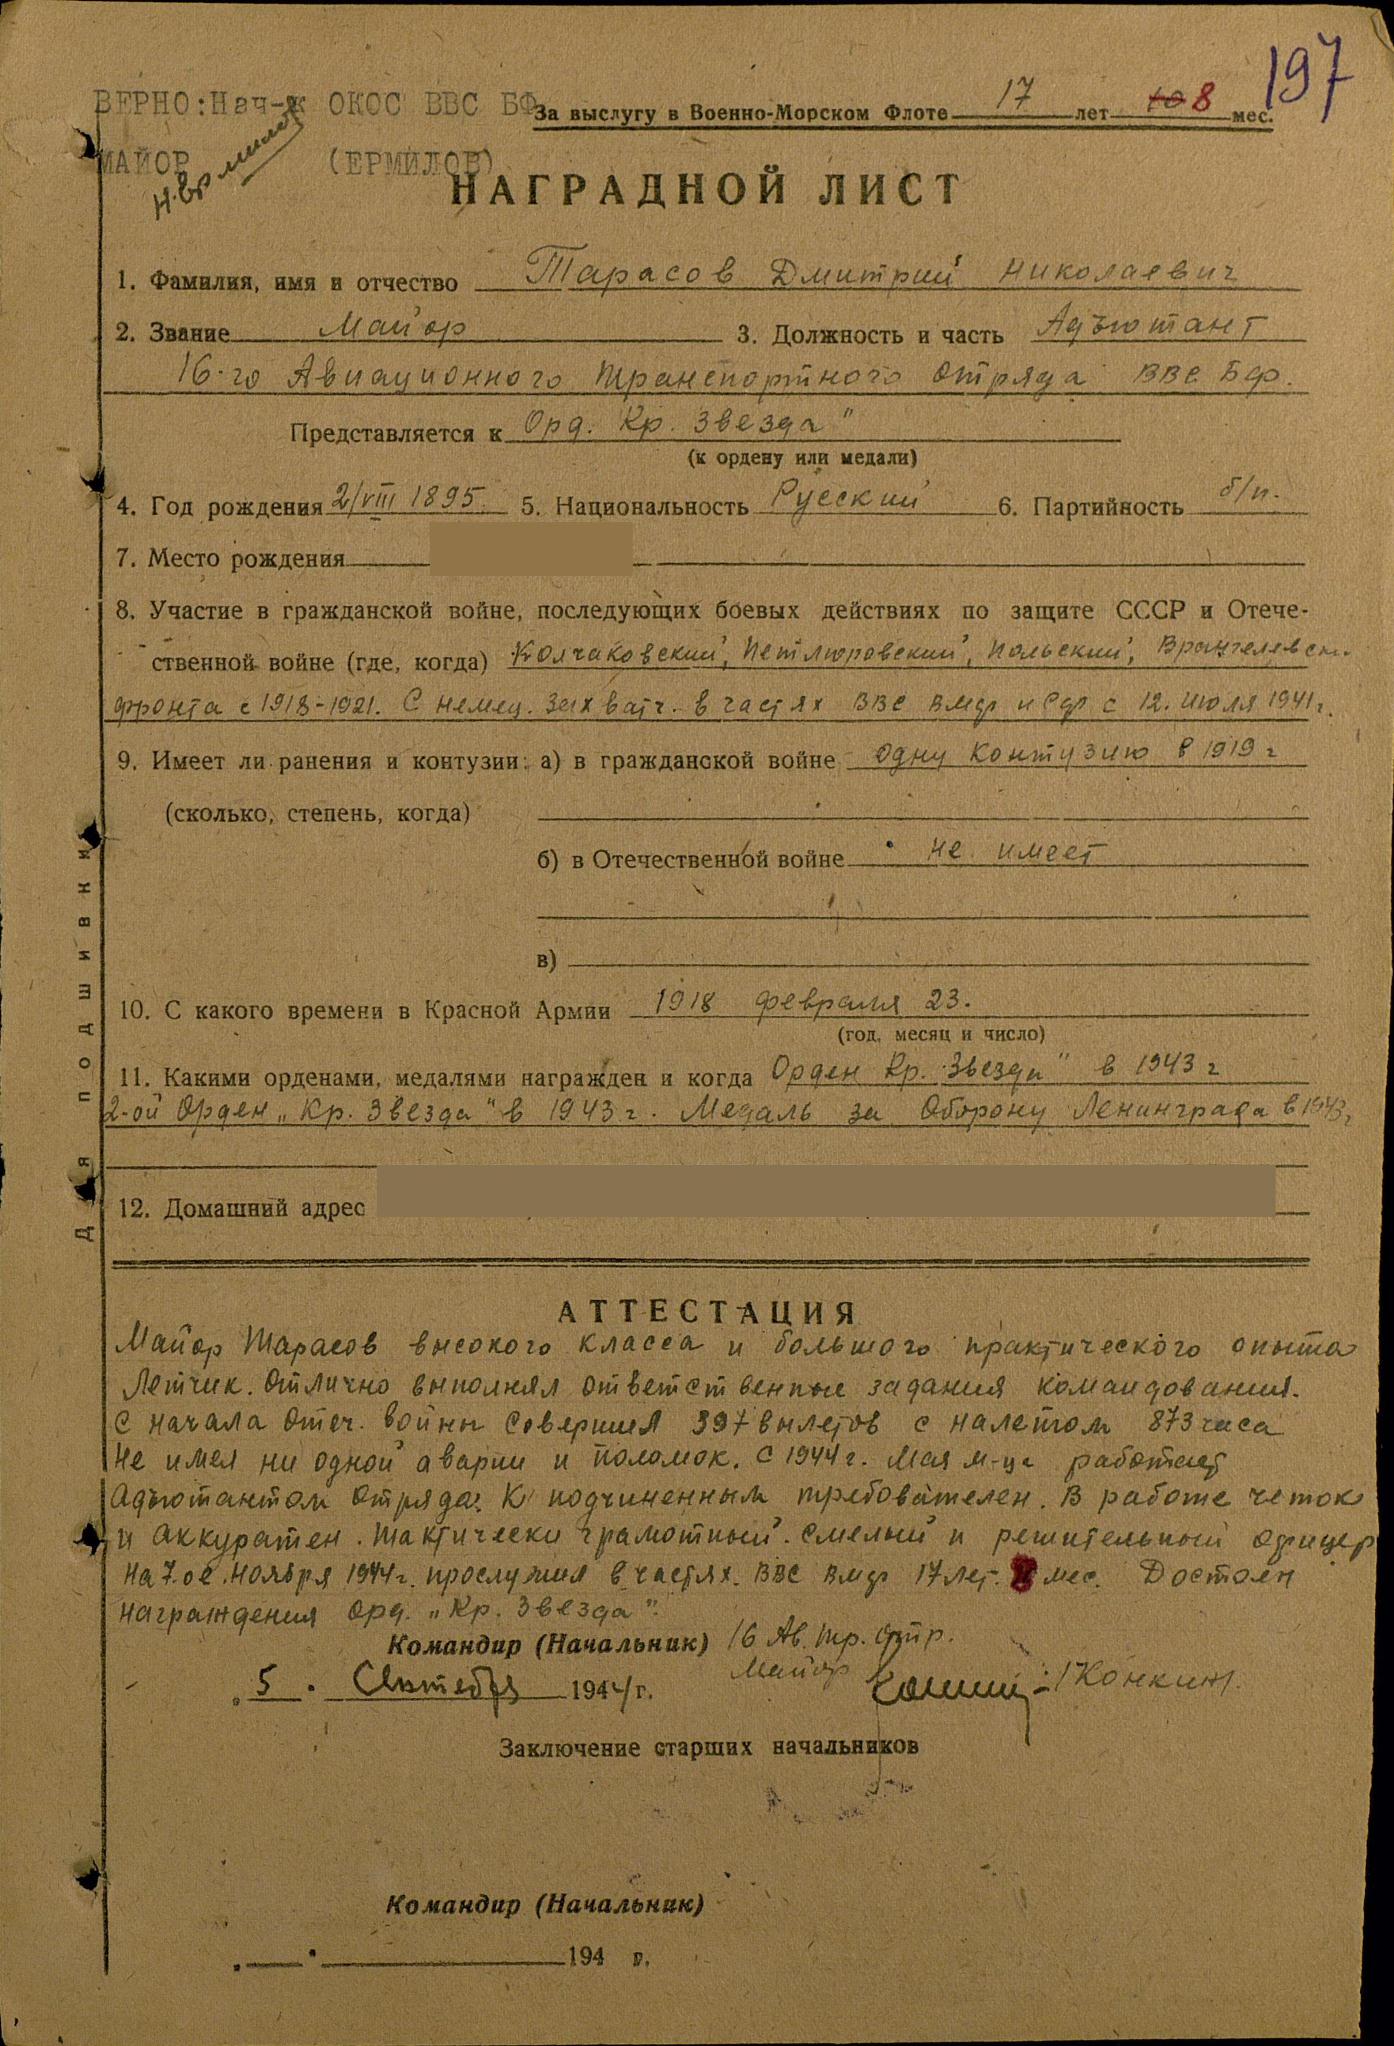 197
ВЕРНО: Нач-к ОКОС ВВС БФ
За выслугу в Военно-Морском Флоте 17 лет 10 8 мес.
МАЙОР (ЕРМИЛОВ)
НАГРАДНОЙ ЛИСТ
1. Фамилия, имя и отчество Тарасов Дмитрий Николаевич
2. Звание Майор 3. Должность и часть Адъютант
16-го Авиационного транспортного отряда ВВС БФ.
Представляется к Орд. Кр. Звезда"
(к ордену или медали)
4. Год рождения 2/VIII 1895. 5. Национальность Русский 6. Партийность б/п.
7. Место рождения
8. Участие в гражданской войне, последующих боевых действиях по защите СССР и Отече-
ственной войне (где, когда) Колчаковский, Петлюровский, Польский, Врангелевск.
фронта с 1918-1921. С немец. захватч. в частях ВВС ВМФ КБФ с 12. июля 1941 г.
9. Имеет ли ранения и контузии: а) в гражданской войне одну контузию в 1919 г
(сколько, степень, когда)
б) в Отечественной войне не имеет
в)
10. С какого времени в Красной Армии 1918 февраля 23.
(год, месяц и число)
11. Какими орденами, медалями награжден и когда Орден Кр. Звезда" в 1943 г
2-ой Орден „Кр. Звезда" в 1943 г. Медаль за Оборону Ленинграда в 1943 г.
12. Домашний адрес
Для подшивки
АТТЕСТАЦИЯ
Майор Тарасов высокого класса и большого практического опыта
Летчик. Отлично выполнял ответственные задания командования.
С начала Отеч. войны совершил 397 вылетов с налетом 873 часа
Не имея ни одной аварии и поломок. С 1944 г. Мая м-ца работает
Адъютантом Отряда. К подчиненным требователен. В работе четок
и аккуратен. Тактически грамотный. Смелый и решительный офицер
На 7.ое Ноября 1944 г. прослужил в частях ВВС ВМФ 17 лет. 8 мес. Достоин
награждения Орд. „Кр. Звезда".
Командир (Начальник) 16 Ав. Тр. Отр.
Майор /Конкин/.
„5" Сентября 1944 г.
Заключение старших начальников
Командир (Начальник)
„ " 194 г.